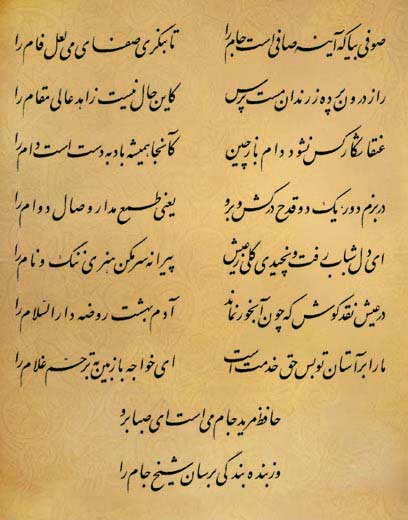 صوفی بیا که آینه صافی است جام را تا بنگری صفای می لعل فام را
راز درون پرده ز رندان مست پرس کاین حال نیست زاهد عالی مقام را
عنقا شکار کس نشود دام بازچین کآنجا همیشه باد به دست است دام را
در بزم دور یک دو قدح درکش و برو یعنی طمع مدار وصال دوام را
ای دل شباب رفت و نچیدی گلی ز عیش پیرانه سر مکن هنری ننگ و نام را
در عیش نقد کوش که چون آبخور نماند آدم بهشت روضه دارالسّلام را
ما را بر آستان تو بس حق خدمت است ای خواجه بازبین به ترحّم غلام را
حافظ مرید جام می است ای صبا برو
وز بنده بندگی برسان شیخ جام را